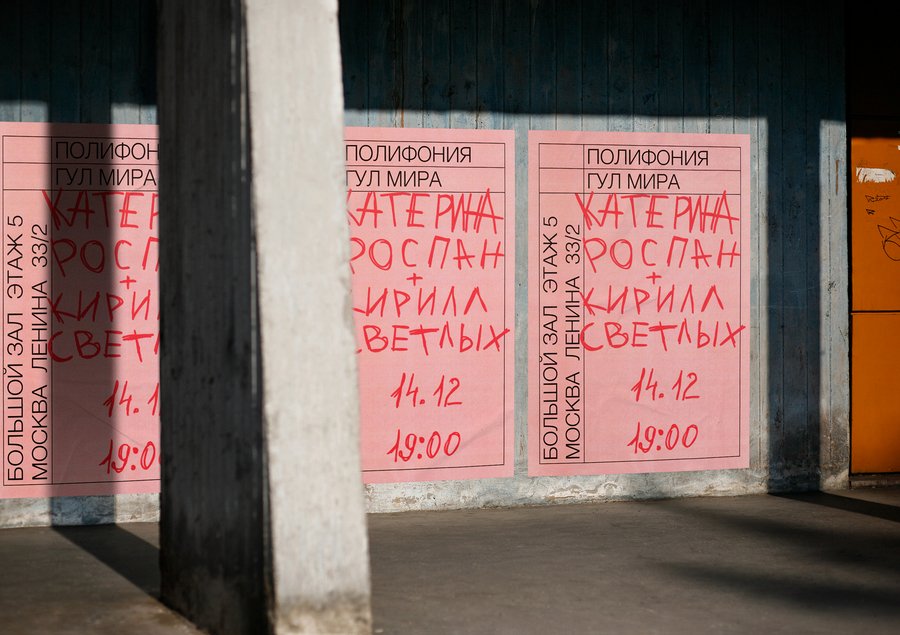 ПОЛИФОН
ГУЛ МИРА
КАТЕР
РОСП
+
КИРИ
СВЕТ
14.1
19:0
БОЛЬШОЙ ЗАЛ ЭТАЖ 5
МОСКВА ЛЕНИНА 33/2
ПОЛИФОНИЯ
ГУЛ МИРА
КАТЕРИНА
РОСПАН
+
КИРИЛЛ
СВЕТЛЫХ
14.12
19:00
ПОЛИФОНИЯ
ГУЛ МИРА
КАТЕРИНА
РОСПАН
+
КИРИЛЛ
СВЕТЛЫХ
14.12
19:00
БОЛЬШОЙ ЗАЛ ЭТАЖ 5
МОСКВА ЛЕНИНА 33/2